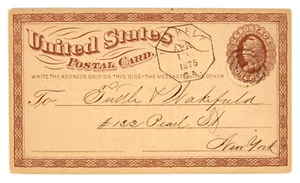 United States
POSTAL CARD.
WRITE THE ADDRESS ONLY ON THIS SIDE—THE MESSAGE ON THE OTHER
1875
GA.
To Tuttle & Wakefield
#132 Pearl St
New York